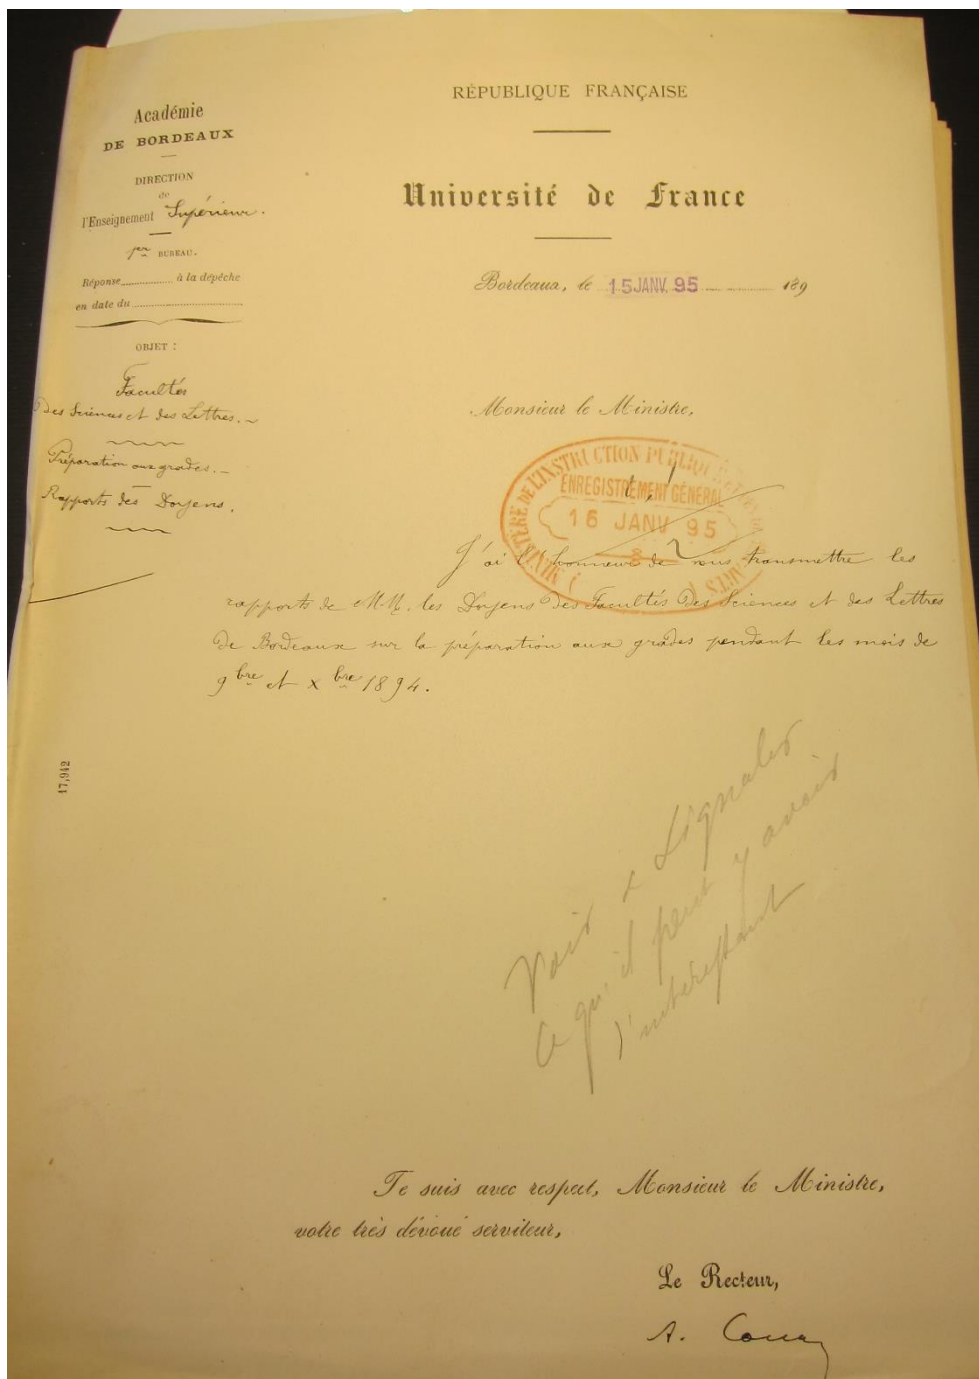 RÉPUBLIQUE FRANÇAISE
Académie
DE BORDEAUX
DIRECTION
de
l'Enseignement Supérieur.
1er BUREAU.
Réponse à la dépêche
en date du
Université de France
Bordeaux, le 15 JANV. 95 189
OBJET :
Facultés
des Sciences et des Lettres. -
Préparation aux grades. -
Rapports des Doyens.
Monsieur le Ministre,
MINISTÈRE DE L'INSTRUCTION PUBLIQUE
ENREGISTREMENT GÉNÉRAL
16 JANV 95
J'ai l'honneur de vous transmettre les
rapports de M.M. les Doyens des Facultés des Sciences et des Lettres
de Bordeaux sur la préparation aux grades pendant les mois de
9bre et xbre 1894.
17,942
Voir & signaler
ce qu'il peut y avoir
d'intéressant
Je suis avec respect, Monsieur le Ministre,
votre très dévoué serviteur,
Le Recteur,
A. Couat